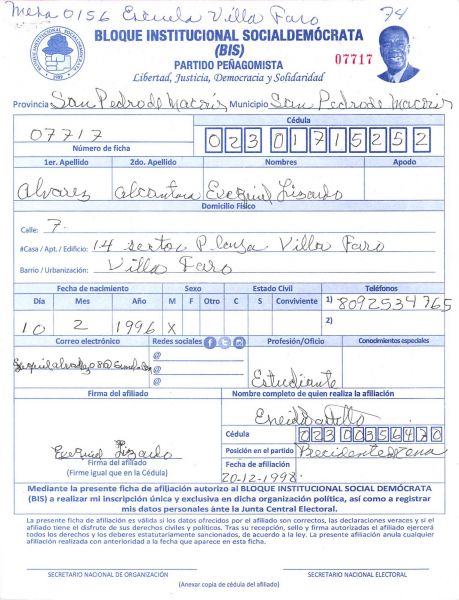 Mesa 0156 Escuela Villa Faro 74
BLOQUE INSTITUCIONAL SOCIALDEMÓCRATA
(BIS)
PARTIDO PEÑAGOMISTA
07717
Libertad, Justicia, Democracia y Solidaridad
Provincia San Pedro de Macoris Municipio San Pedro de Macoris
Cédula
07717 02301715252
Número de ficha
1er. Apellido 2do. Apellido Nombres Apodo
Alvarez Alcantara Ezequiel Lisardo
Domicilio Físico
Calle: 7.
#Casa / Apt. / Edificio: 14 sector Villa Faro
Barrio / Urbanización: Villa Faro
Fecha de nacimiento Sexo Estado Civil Teléfonos
Día Mes Año M F Otro C S Conviviente 1) 8092534765
10 2 1996 X 2)
Correo electrónico Redes sociales Profesión/Oficio Conocimientos especiales
@
@
@
Estudiante
Firma del afiliado Nombre completo de quien realiza la afiliación
Cédula 02300356470
Posición en el partido
Ezequiel Lisardo
Firma del afiliado
(Firme igual que en la Cédula)
Fecha de afiliación
20-12-1998.
Mediante la presente ficha de afiliación autorizo al BLOQUE INSTITUCIONAL SOCIAL DEMÓCRATA
(BIS) a realizar mi inscripción única y exclusiva en dicha organización política, así como a registrar
mis datos personales ante la Junta Central Electoral.
La presente ficha de afiliación es válida si los datos ofrecidos por el afiliado son correctos, las declaraciones veraces y si el
afiliado tiene el disfrute de sus derechos civiles y políticos. Tras su recepción, sello y firma autorizadas el afiliado ejercerá
todos los derechos y los deberes estatutariamente sancionados, de acuerdo a la ley. La presente afiliación anula cualquier
afiliación realizada con anterioridad a la fecha que aparece en esta ficha.
SECRETARIO NACIONAL DE ORGANIZACIÓN SECRETARIO NACIONAL ELECTORAL
(Anexar copia de cédula del afiliado)